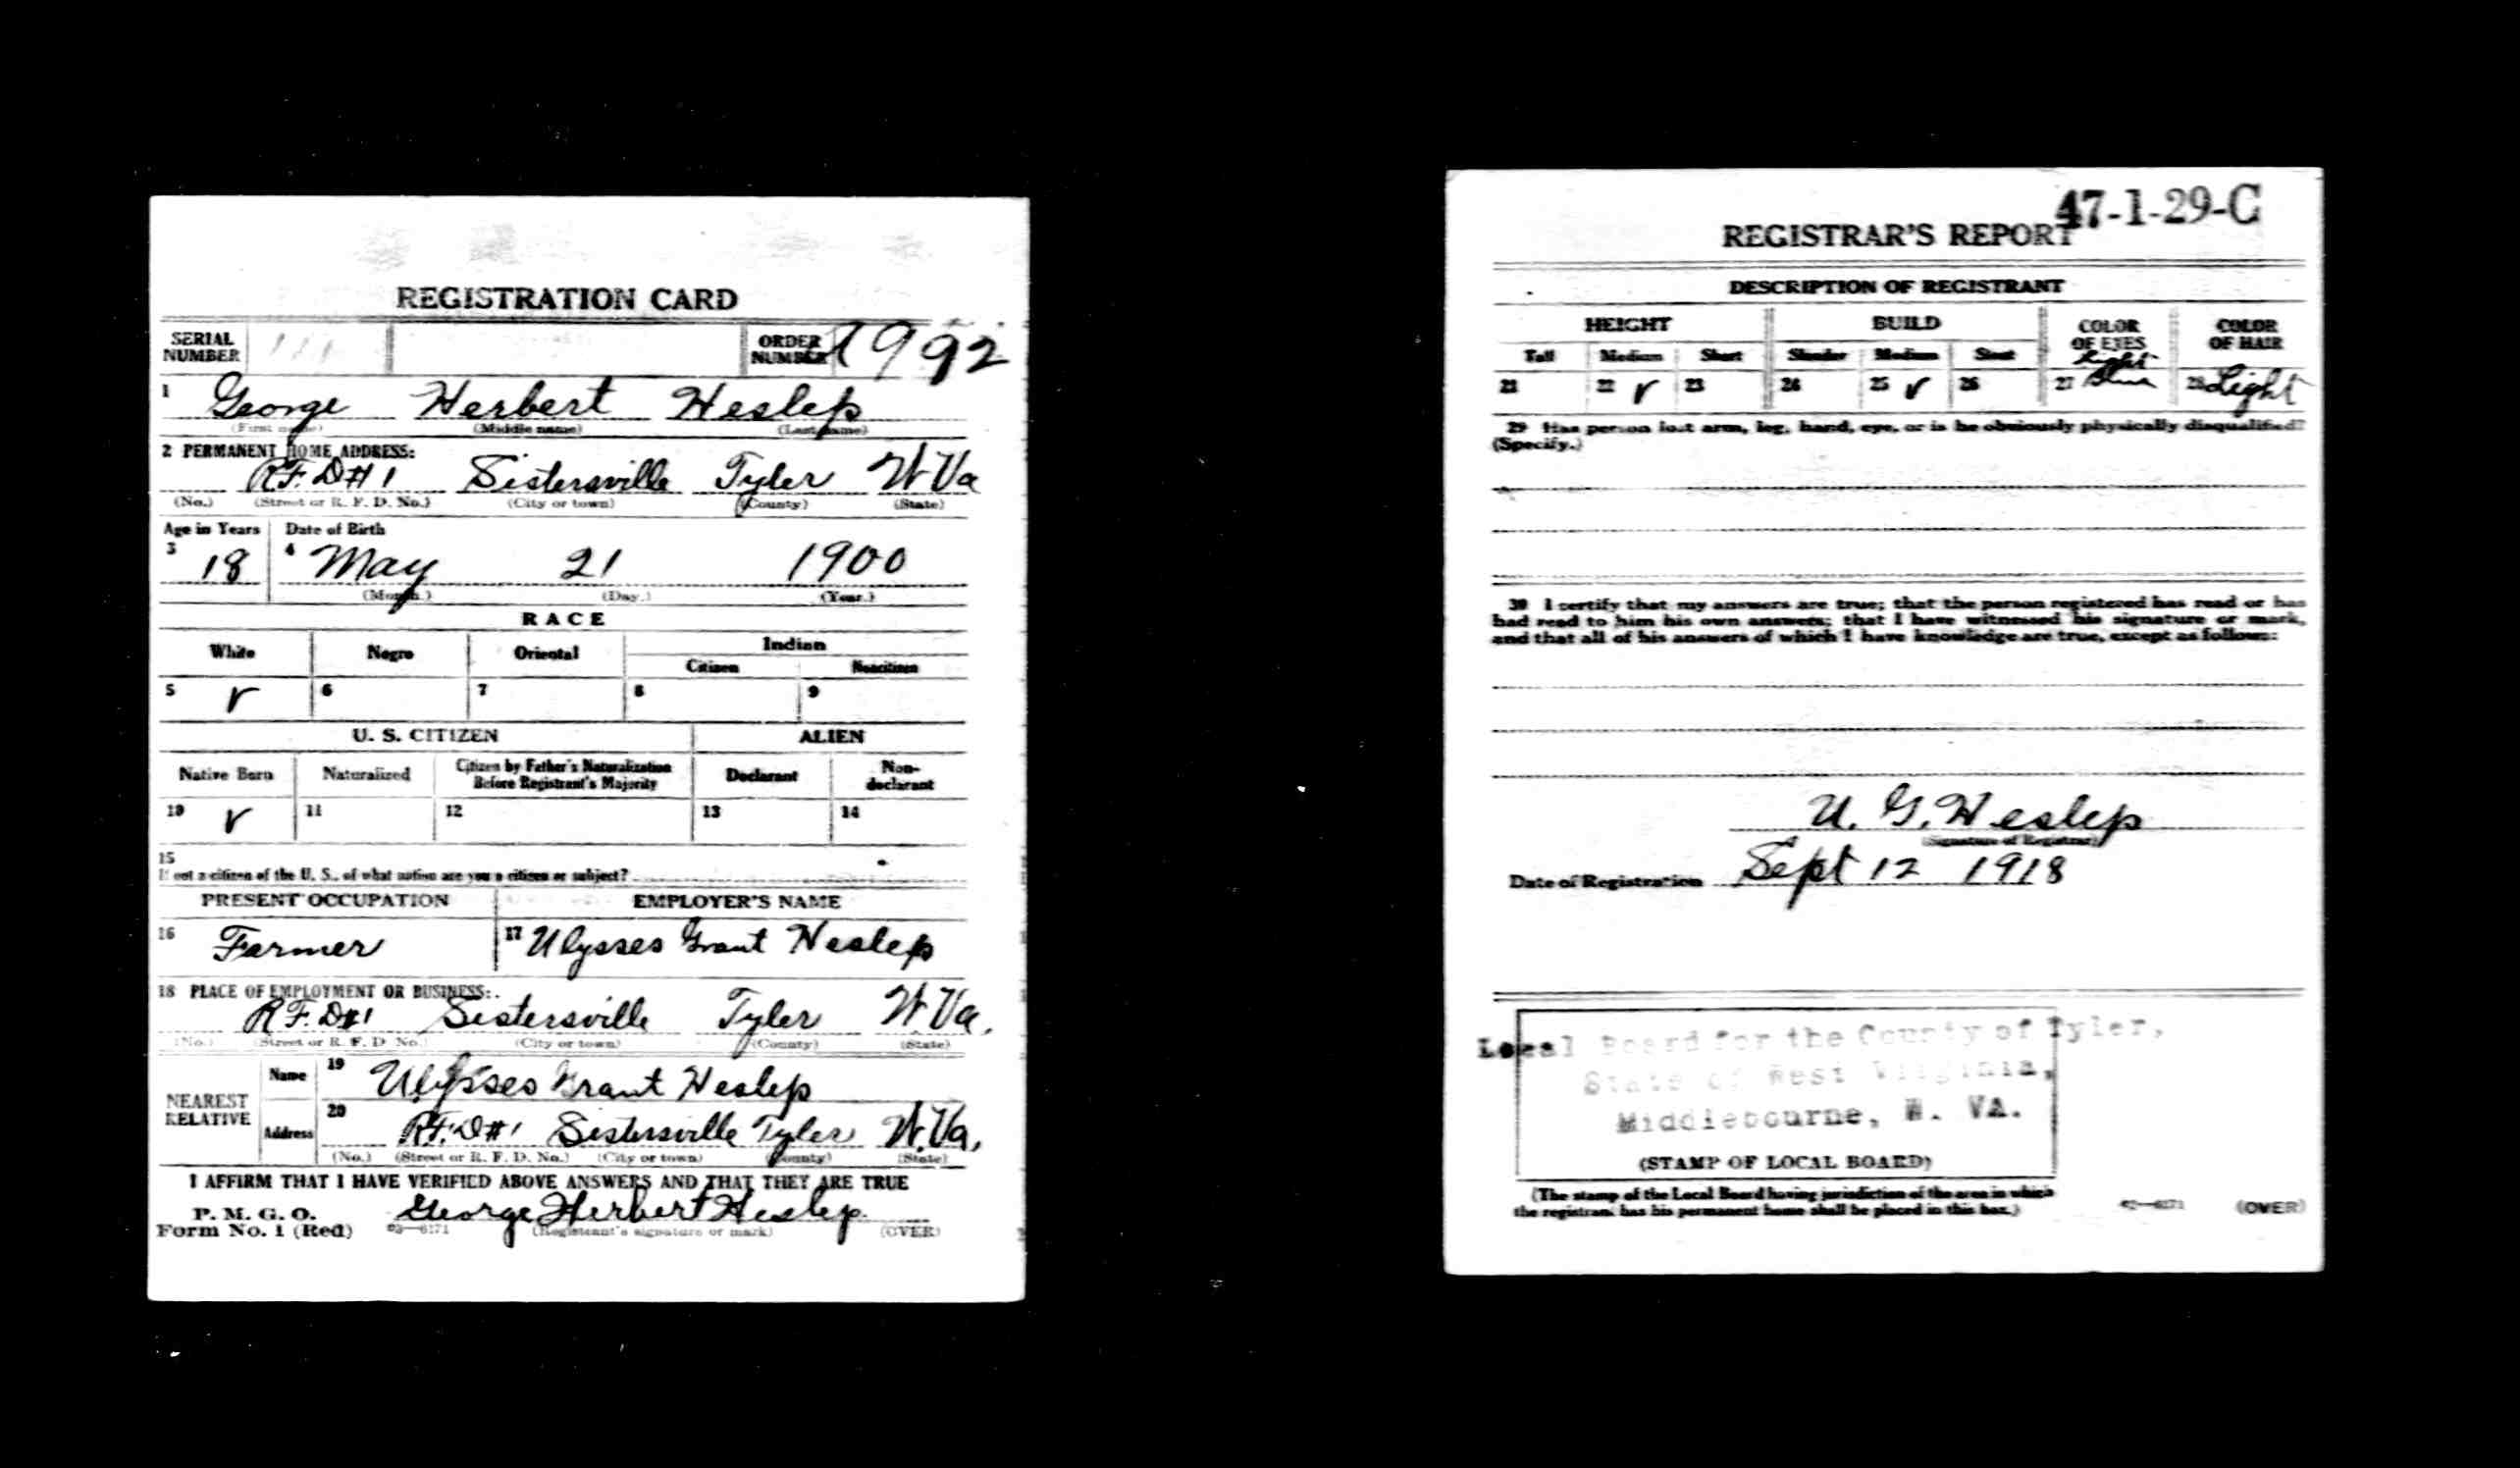 REGISTRATION CARD
SERIAL NUMBER
ORDER NUMBER 1992
1 George Herbert Heslep
(First name) (Middle name) (Last name)
2 PERMANENT HOME ADDRESS:
R.F.D#1 Sistersville Tyler W Va
(No.) (Street or R. F. D. No.) (City or town) (County) (State)
Age in Years Date of Birth
3 18 4 May 21 1900
(Month.) (Day.) (Year.)
RACE
White Negro Oriental Indian
Citizen Noncitizen
5 ✓ 6 7 8 9
U. S. CITIZEN ALIEN
Native Born Naturalized Citizen by Father's Naturalization Before Registrant's Majority Declarant Non-declarant
10 ✓ 11 12 13 14
15
If not a citizen of the U. S., of what nation are you a citizen or subject?
PRESENT OCCUPATION EMPLOYER'S NAME
16 Farmer 17 Ulysses Grant Heslep
18 PLACE OF EMPLOYMENT OR BUSINESS:
R.F.D#1 Sistersville Tyler W.Va.
(No.) (Street or R. F. D. No.) (City or town) (County) (State)
NEAREST RELATIVE
Name 19 Ulysses Grant Heslep
Address 20 R.F.D#1 Sistersville Tyler W.Va.
(No.) (Street or R. F. D. No.) (City or town) (County) (State)
I AFFIRM THAT I HAVE VERIFIED ABOVE ANSWERS AND THAT THEY ARE TRUE
P. M. G. O.
Form No. 1 (Red) George Herbert Heslep
(Registrant's signature or mark) (OVER)
47-1-29-C
REGISTRAR'S REPORT
DESCRIPTION OF REGISTRANT
HEIGHT BUILD COLOR OF EYES COLOR OF HAIR
Tall Medium Short Slender Medium Stout
21 22 ✓ 23 24 25 ✓ 26 27 Light Blue 28 Light
29 Has person lost arm, leg, hand, eye, or is he obviously physically disqualified?
(Specify.)
30 I certify that my answers are true; that the person registered has read or has
had read to him his own answers; that I have witnessed his signature or mark,
and that all of his answers of which I have knowledge are true, except as follows:
U. G. Heslep
(Signature of Registrar)
Date of Registration Sept 12 1918
Local Board for the County of Tyler,
State of West Virginia,
Middlebourne, W. VA.
(STAMP OF LOCAL BOARD)
(The stamp of the Local Board having jurisdiction of the area in which
the registrant has his permanent home shall be placed in this box.)
(OVER)